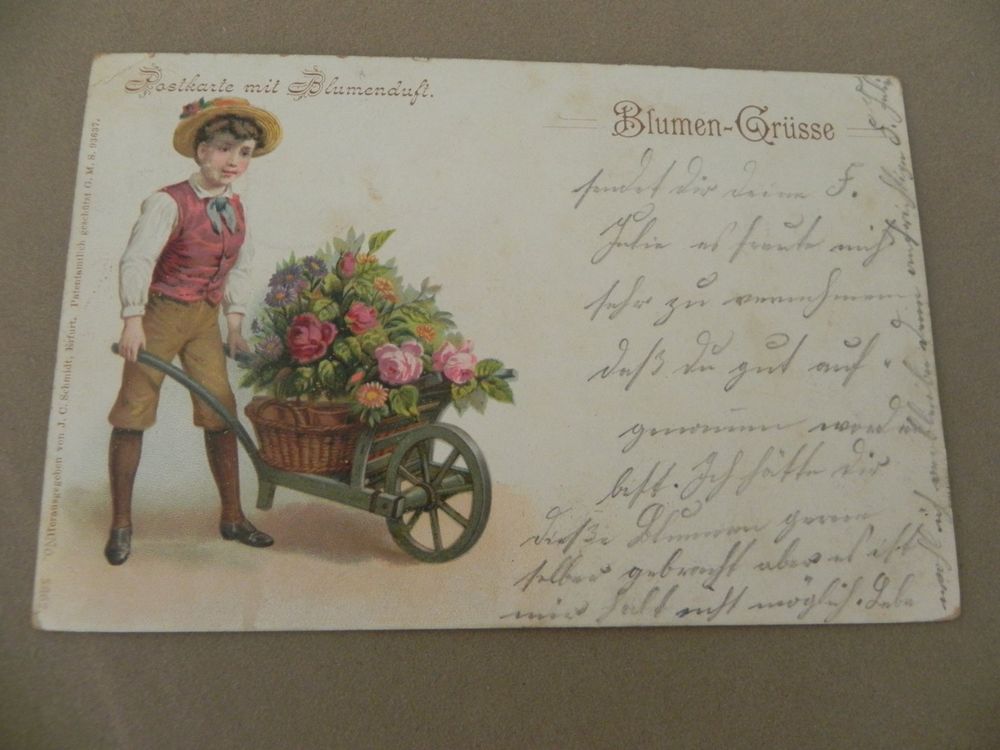 Postkarte mit Blumenduft.
Blumen-Grüsse
sendet dir deine F.
Julie es freute mich
sehr zu vernehmen
daß du gut auf-
genommen worden
bist. Ich hätte dir
dieße Blummen gerne
selber gebracht aber es ist
mir halt nicht möglich. Lebe
wohl
aufrichtigen F. Julie
Herausgegeben von J. C. Schmidt, Erfurt. Patentamtlich geschützt G. M. S. 93637.